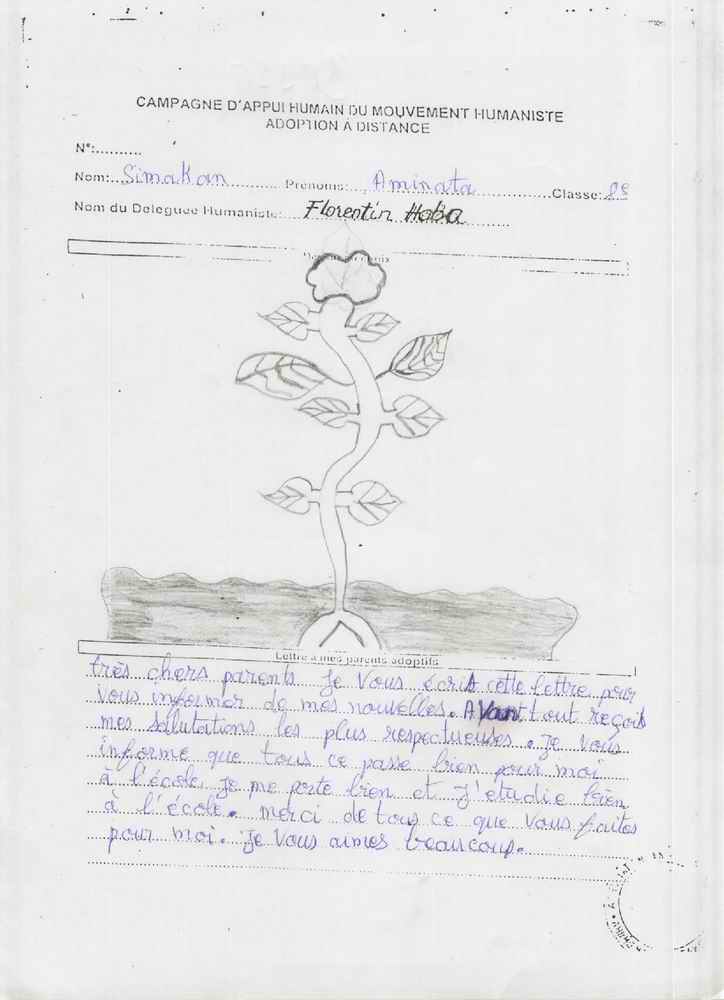 CAMPAGNE D'APPUI HUMAIN DU MOUVEMENT HUMANISTE
ADOPTION A DISTANCE
N°:..........
Nom: Simakan Prénoms: Aminata Classe: 8e
Nom du Deleguee Humaniste: Florentin Haba
Lettre a mes parents adoptifs
très chers parents Je Vous écris cette lettre pour
Vous informer de mes nouvelles. Avant tout reçois
mes salutations les plus respectueuses. Je Vous
informe que tous ce passe bien pour moi
à l'école. Je me porte bien et J'etudie bien
à l'école. merci de tous ce que Vous faites
pour moi. Je Vous aimes beaucoup.